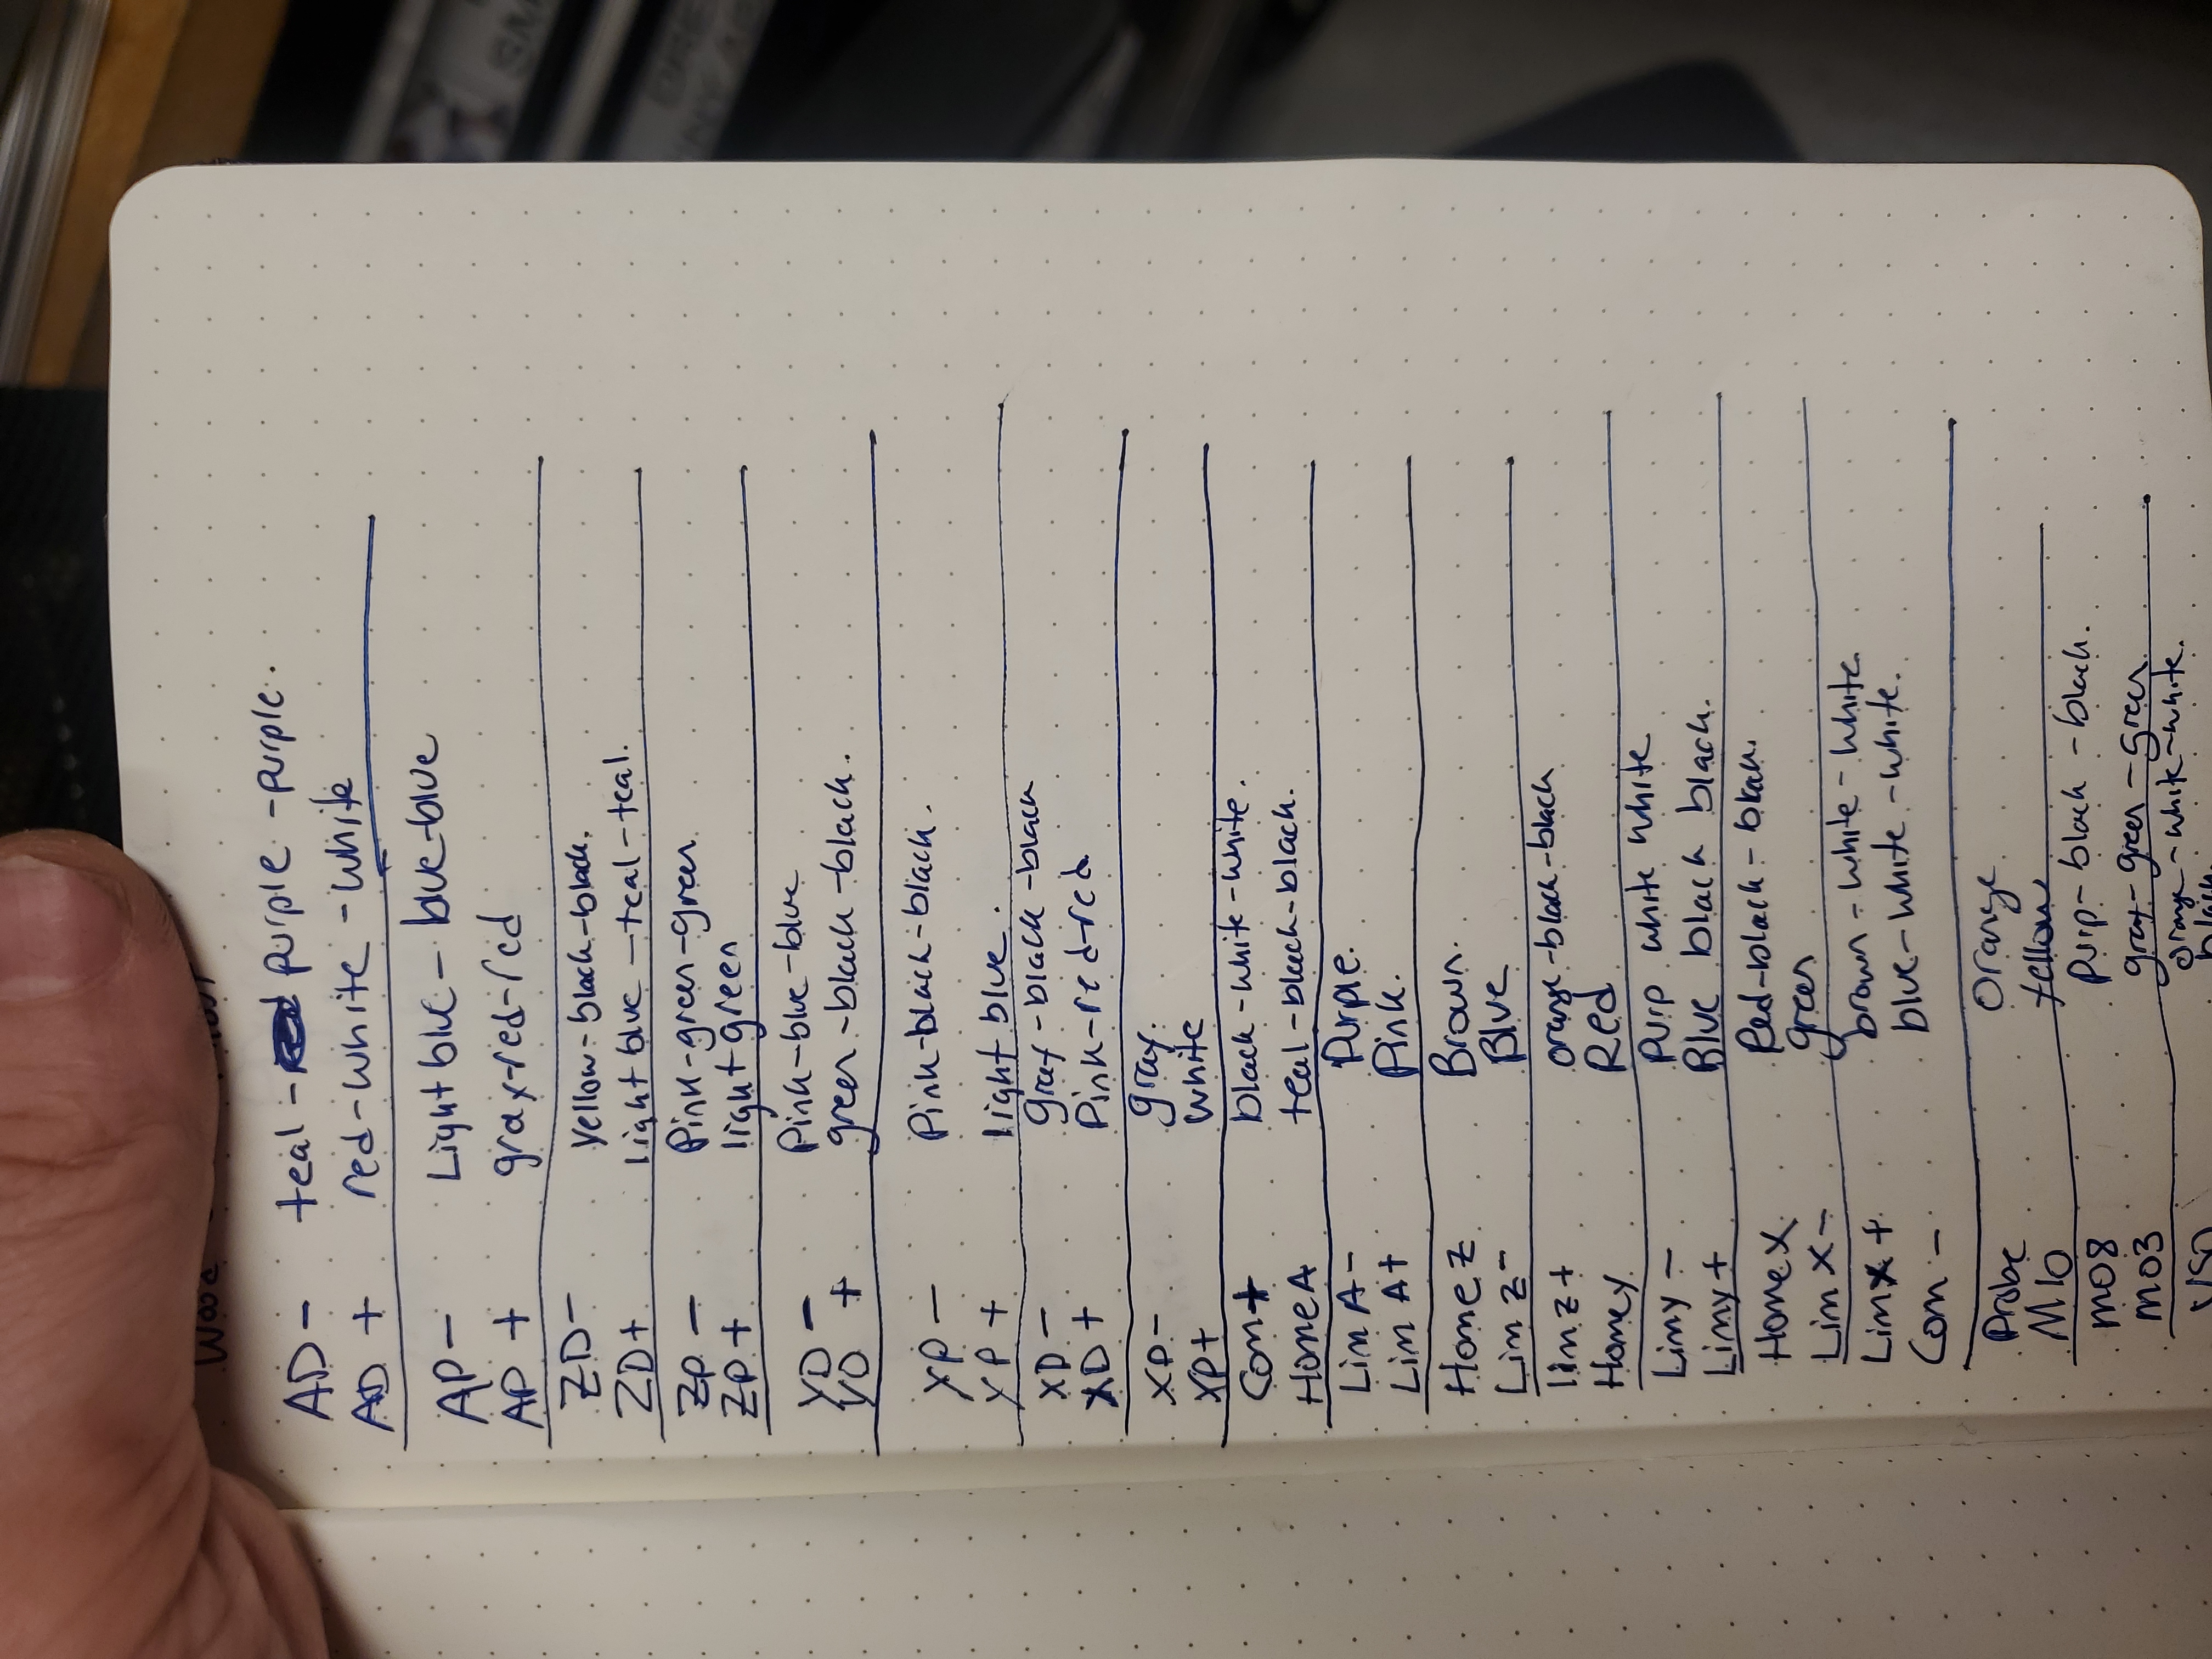 AD - teal - purple - purple.
AD + red-white-white
AP - Light blue - blue-blue
AP + gray-red-red
ZD - yellow-black-black.
ZD + light blue - teal-teal.
ZP - Pink-green-green
ZP + light green
YD - Pink-blue-blue
YD + green-black-black.
YP - Pink-black-black.
YP + light blue.
XD - gray-black-black
XD + Pink-red-red
XP - gray.
XP + white
Com + black-white-white.
Home A teal-black-black.
Lim A - Purple.
Lim A + Pink.
Home Z Brown.
Lim Z - Blue
lim z + orange-black-black
Home y Red
Lim y - Purp white white
Lim y + Blue black black.
Home X Red-black-black.
Lim X - green
Lim x + brown-white-white.
Com - blue-white-white.
Probe Orange
M10 yellow
M08 purp-black-black.
M03 gray-green-green
orange-white-white.